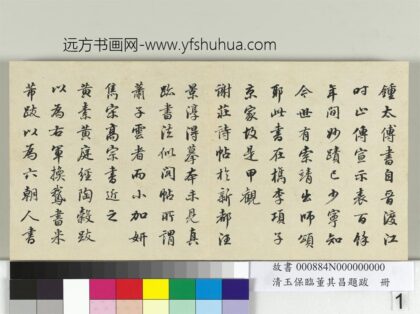 远方书画网-www.yfshuhua.com
鍾太傅書自晉渡江
時止傳宣示表百餘
年間妙蹟已少寧知
今世有索靖出師頌
耶此書在檇李項子
京家故是甲觀
謝莊詩帖於新都汪
景淳得摹本未見真
跡書法似閣帖所謂
蕭子雲者而小加妍
雋宋高宗書近之
黃素黃庭經陶穀跋
以為右軍換鵞書米
芾跋以為六朝人書
故書 000884N000000000
清玉保臨董其昌題跋 冊
1